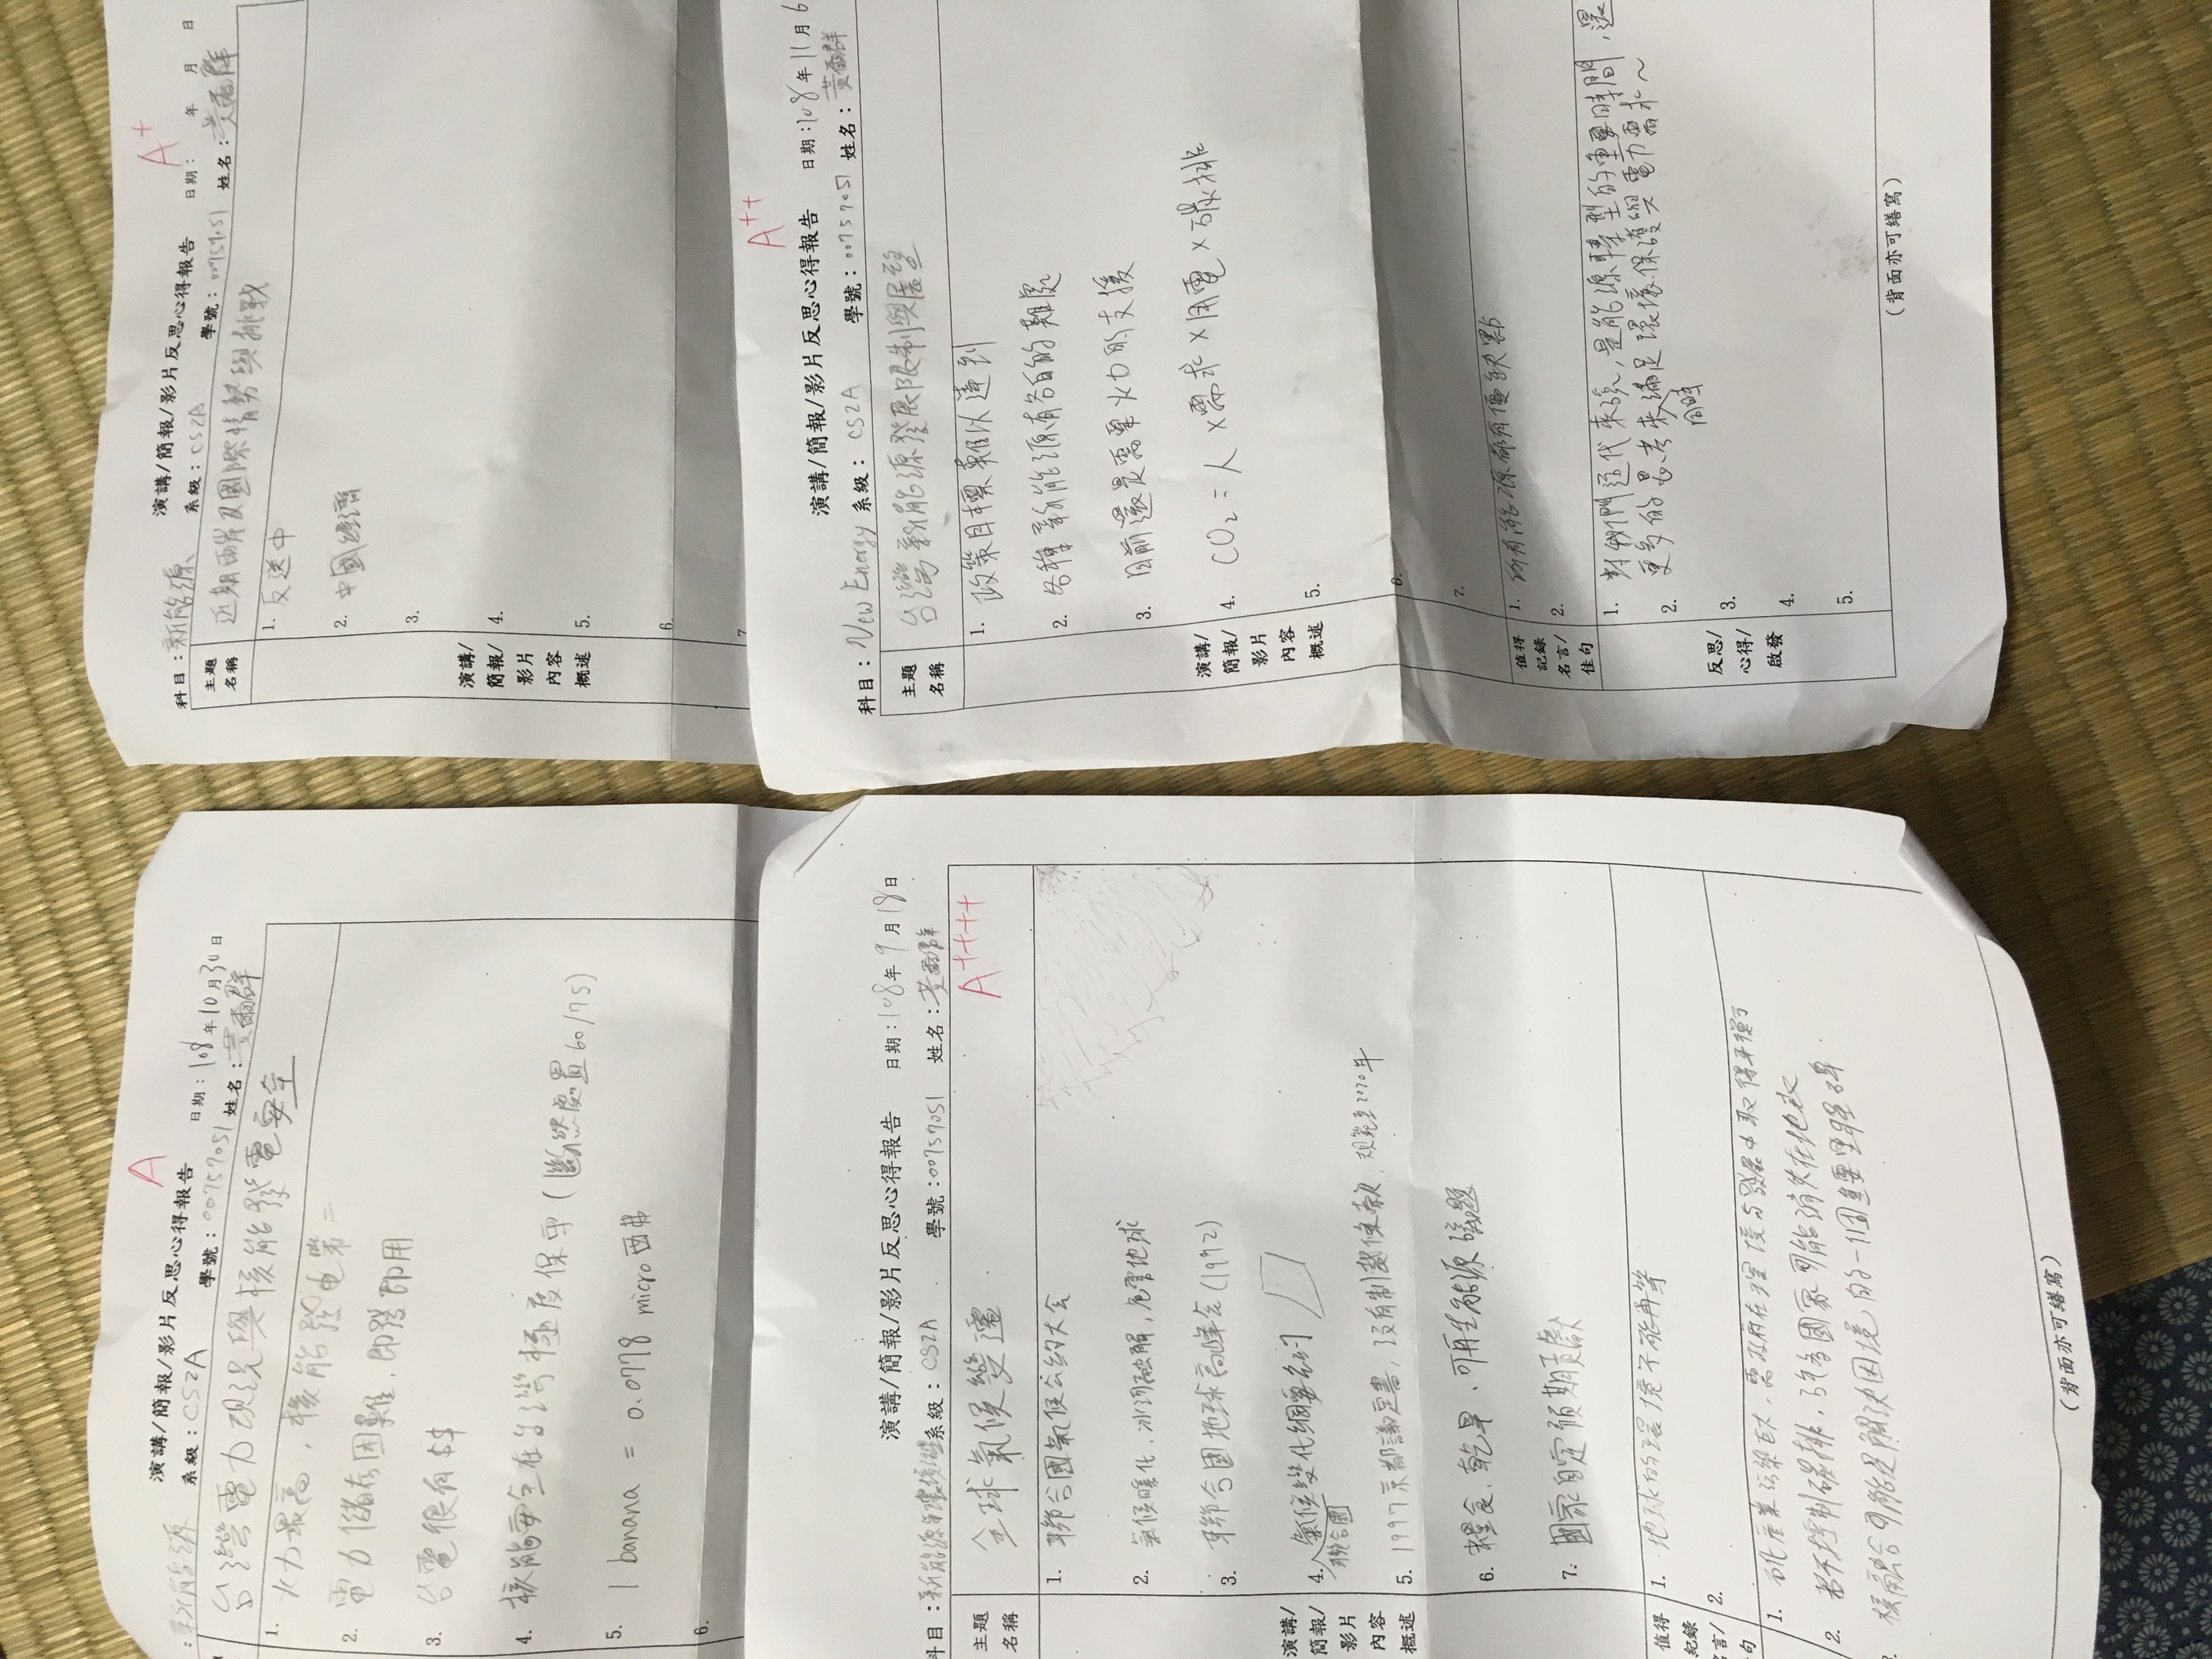 A
演講/簡報/影片反思心得報告
:新能源 系級:CS2A 學號:00757051 日期:108年10月30日 姓名:黃爾群
台灣電力現況與核能發電安全
1. 火力最高,核能發電第二
2. 電力儲存困難,即發即用
3. 台電很有$$
4. 核能安全在台灣極度保守(斷然處置60/75)
5. 1 banana = 0.0778 micro西弗
6.
A+
演講/簡報/影片反思心得報告
科目:新能源 系級:CS2A 學號:00757051 日期: 年 月 日 姓名:黃爾群
主題名稱 近期兩岸及國際情勢與挑戰
演講/簡報/影片內容概述
1. 反送中
2. 中國經濟
3.
4.
5.
6.
7.
演講/簡報/影片反思心得報告 日期:108年9月18日
科目:新能源與環境 系級:CS2A 學號:00757051 姓名:黃爾群
主題名稱 全球氣候變遷 A++++
演講/簡報/影片內容概述
1. 聯合國氣候公約大会
2. 氣候暖化,冰河融解,危害地球
3. 聯合國地球高峰会(1992)
4. 聯合國氣候變化綱要公約
5. 1997京都議定書,沒有制裁條款,規範至2020年
6. 糧食、乾旱、可再生能源議題
7. 國家自定預期貢獻
值得紀錄名言/佳句
1. 地球的環境不能再等
2.
1. 石化產業污染巨大,需政府在環境与發展中取得平衡
2. 若不控制碳排,許多國家可能消失在地表
3. 核融合可能是解決困境的一個重要里程碑
(背面亦可繕寫)
A++
演講/簡報/影片反思心得報告 日期:108年11月6
科目:New Energy 系級:CS2A 學號:00757051 姓名:黃爾群
主題名稱 台灣新能源發展限制與展望
演講/簡報/影片內容概述
1. 政策目標難以達到
2. 各種新能源有各自的難處
3. 目前還是需要火力的支援
4. CO2=人×需求×用電×碳排
5.
6.
7.
值得記錄名言/佳句
1. 所有能源都有優缺點
2.
反思/心得/啟發
1. 對我們這代來說,是能源轉型的重要時間,還
2. 更多的思考來同時滿足環境保護與電力需求~
3.
4.
5.
(背面亦可繕寫)